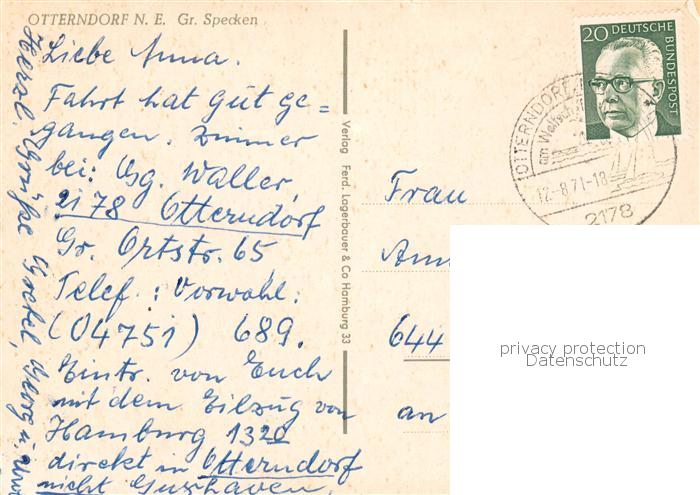 OTTERNDORF N. E. Gr. Specken
Liebe Anna.
Fahrt hat gut ge=
gangen. Zimmer
bei: Gg. Waller
2178 Otterndorf
Gr. Ortstr. 65
Telef.: Vorwahl:
(04751) 689.
Eintr. von Euch
mit dem Eilzug von
Hamburg 1320
direkt in Otterndorf
nicht Cuxhaven.
Herzl. Grüße
Georg u.
Verlag Ferd. Lagerbauer & Co Hamburg 33
20 DEUTSCHE
BUNDESPOST
OTTERNDORF
am
12.-8.71-18
2178
Frau
644
an
privacy protection
Datenschutz